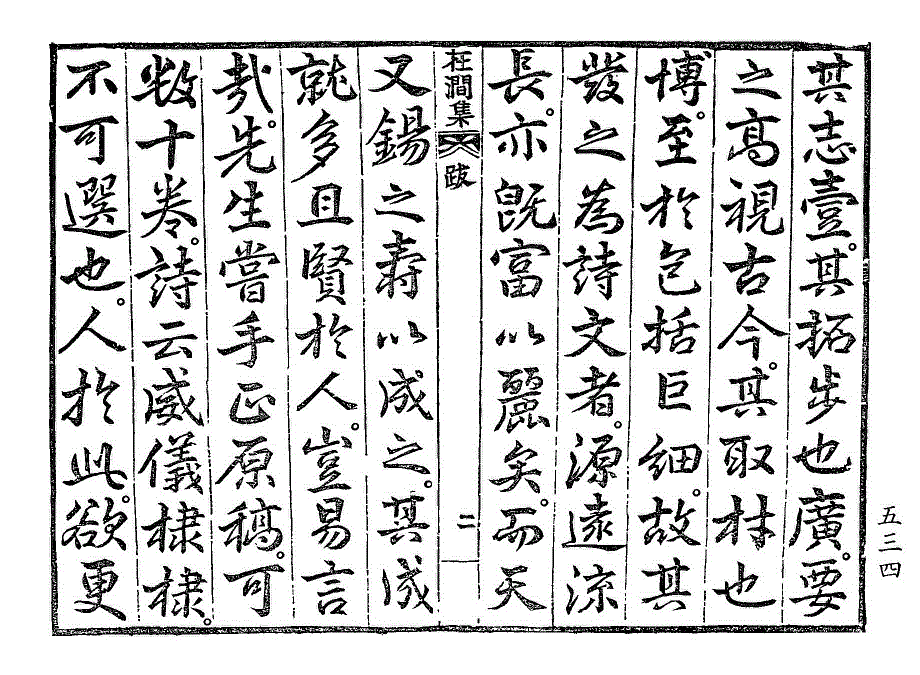 其志壹。其拓步也廣。要
之高視古今。其取材也
博。至於包括巨細。故其
發之為詩文者。源遠流
長。亦既富以麗矣。而天
枉澗集 跋 二
又錫之壽以成之。其成
就多且賢於人。豈易言
哉。先生嘗手正原稿。可
數十卷。詩云威儀棣棣。
不可選也。人於此。欲更
五三四